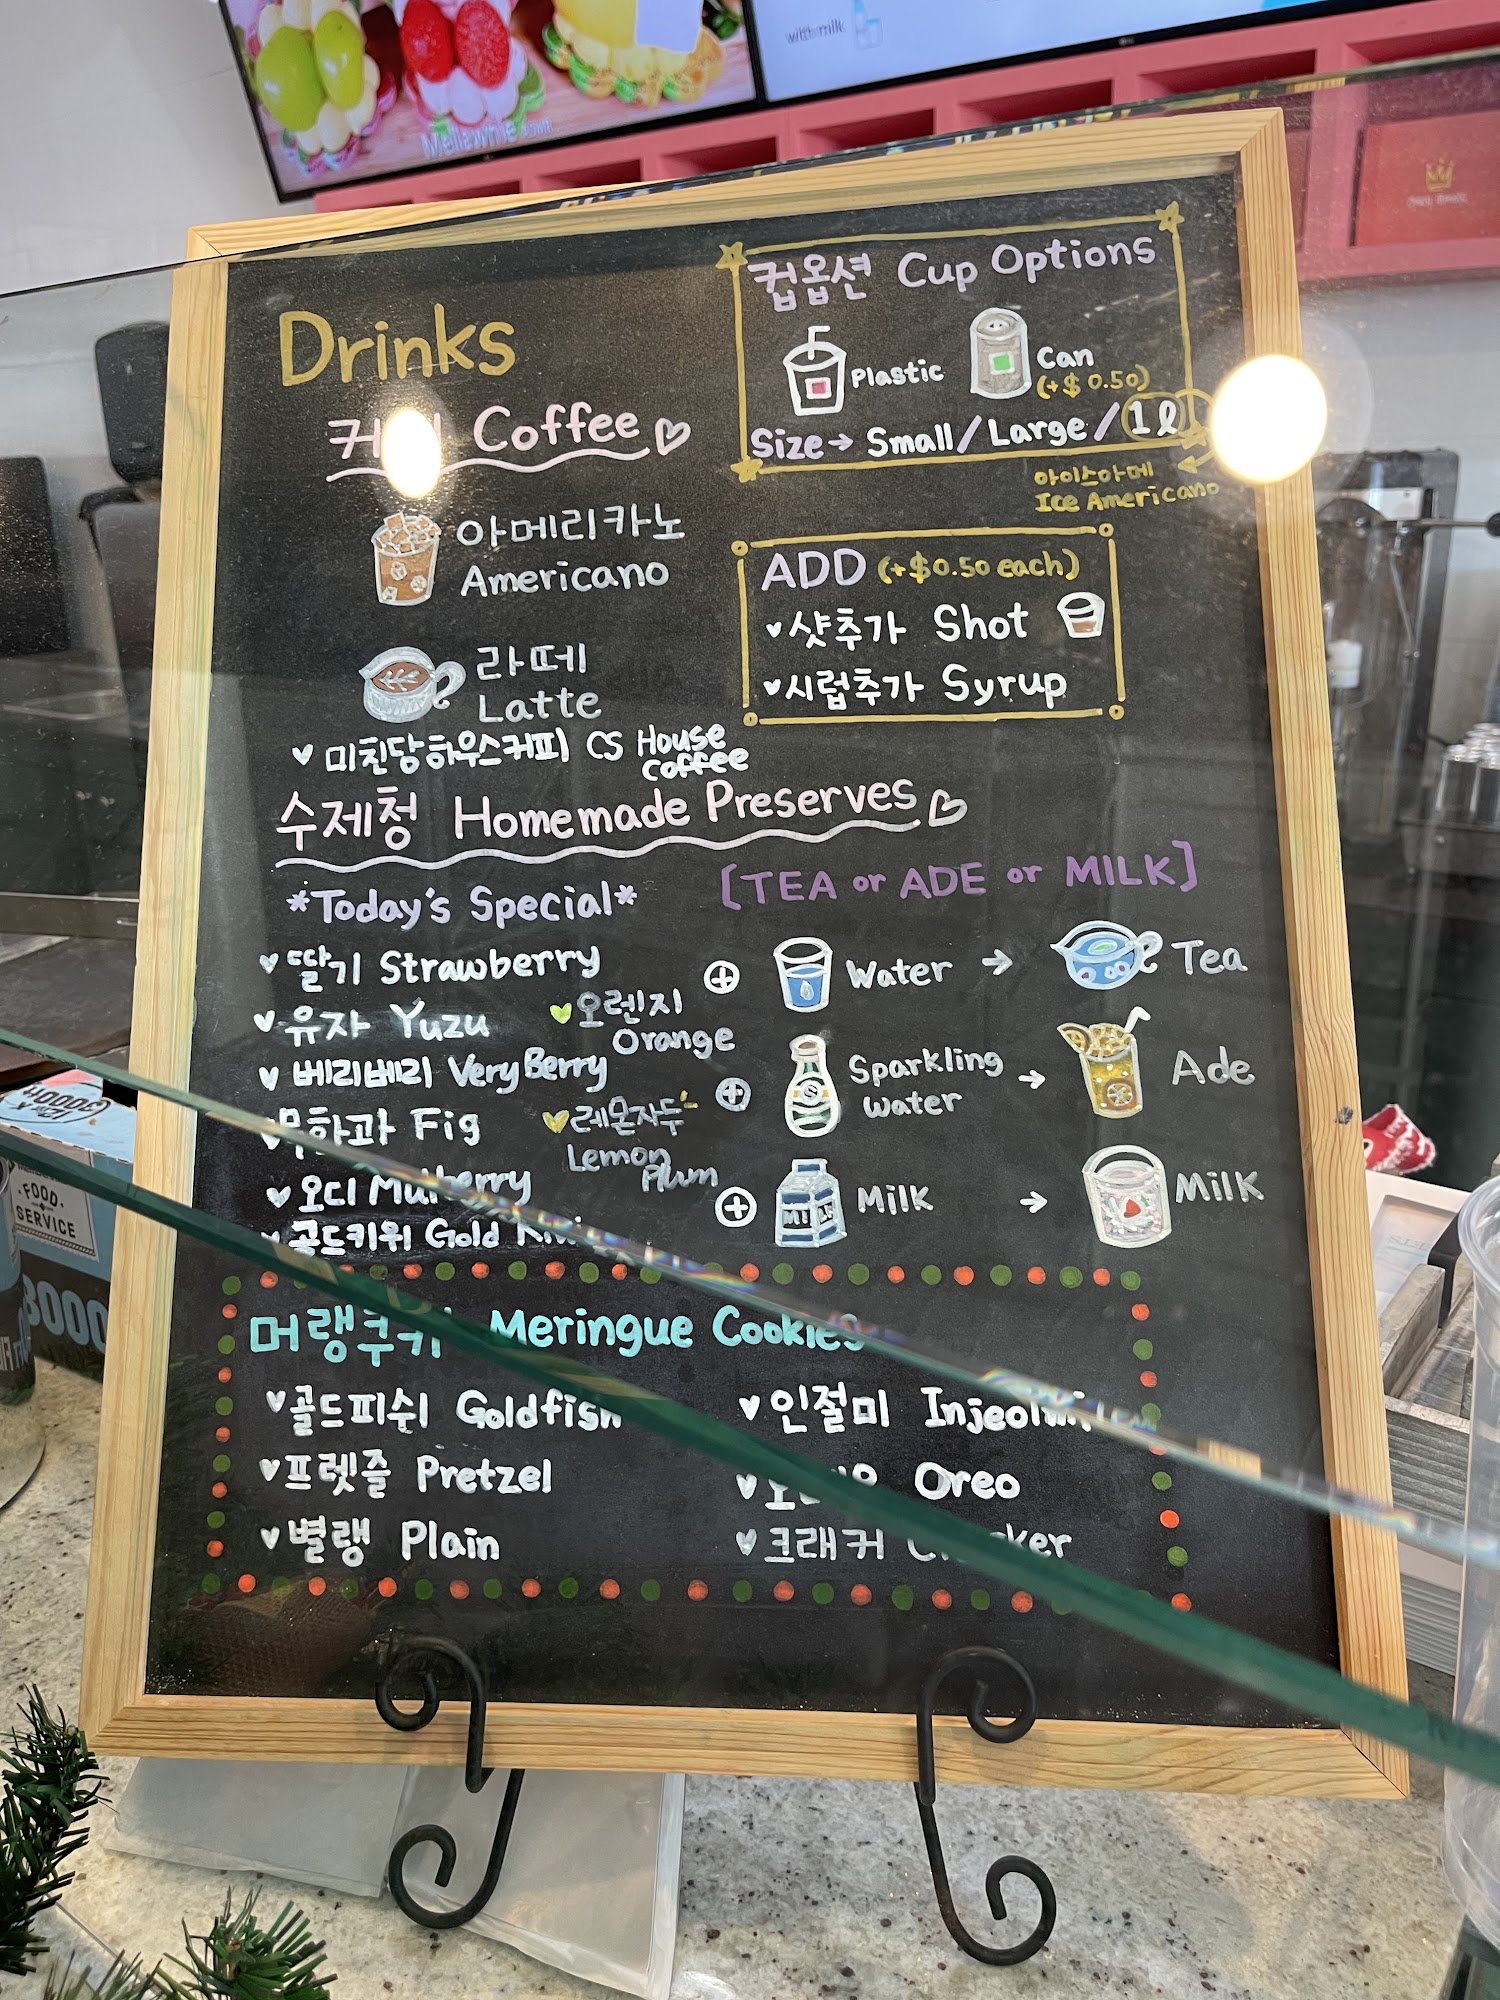 with milk
Drinks
컵옵션 Cup Options
Plastic
Can
(+$ 0.50)
Size → Small / Large / 1ℓ
아이스아메
Ice Americano
Coffee
아메리카노
Americano
라떼
Latte
미친당하우스커피 CS House Coffee
ADD (+$0.50 each)
샷추가 Shot
시럽추가 Syrup
수제청 Homemade Preserves
*Today's Special*
딸기 Strawberry
유자 Yuzu
오렌지
Orange
베리베리 Very Berry
무화과 Fig
레몬자두
Lemon
Plum
오디 Mulberry
골드키위 Gold Kiwi
[TEA or ADE or MILK]
+ Water → Tea
+ Sparkling water → Ade
+ MILK Milk → Milk
머랭쿠키 Meringue Cookies
골드피쉬 Goldfish
프렛즐 Pretzel
별랭 Plain
인절미 Injeolmi
Oreo
크래커
FOOD
SERVICE
3000